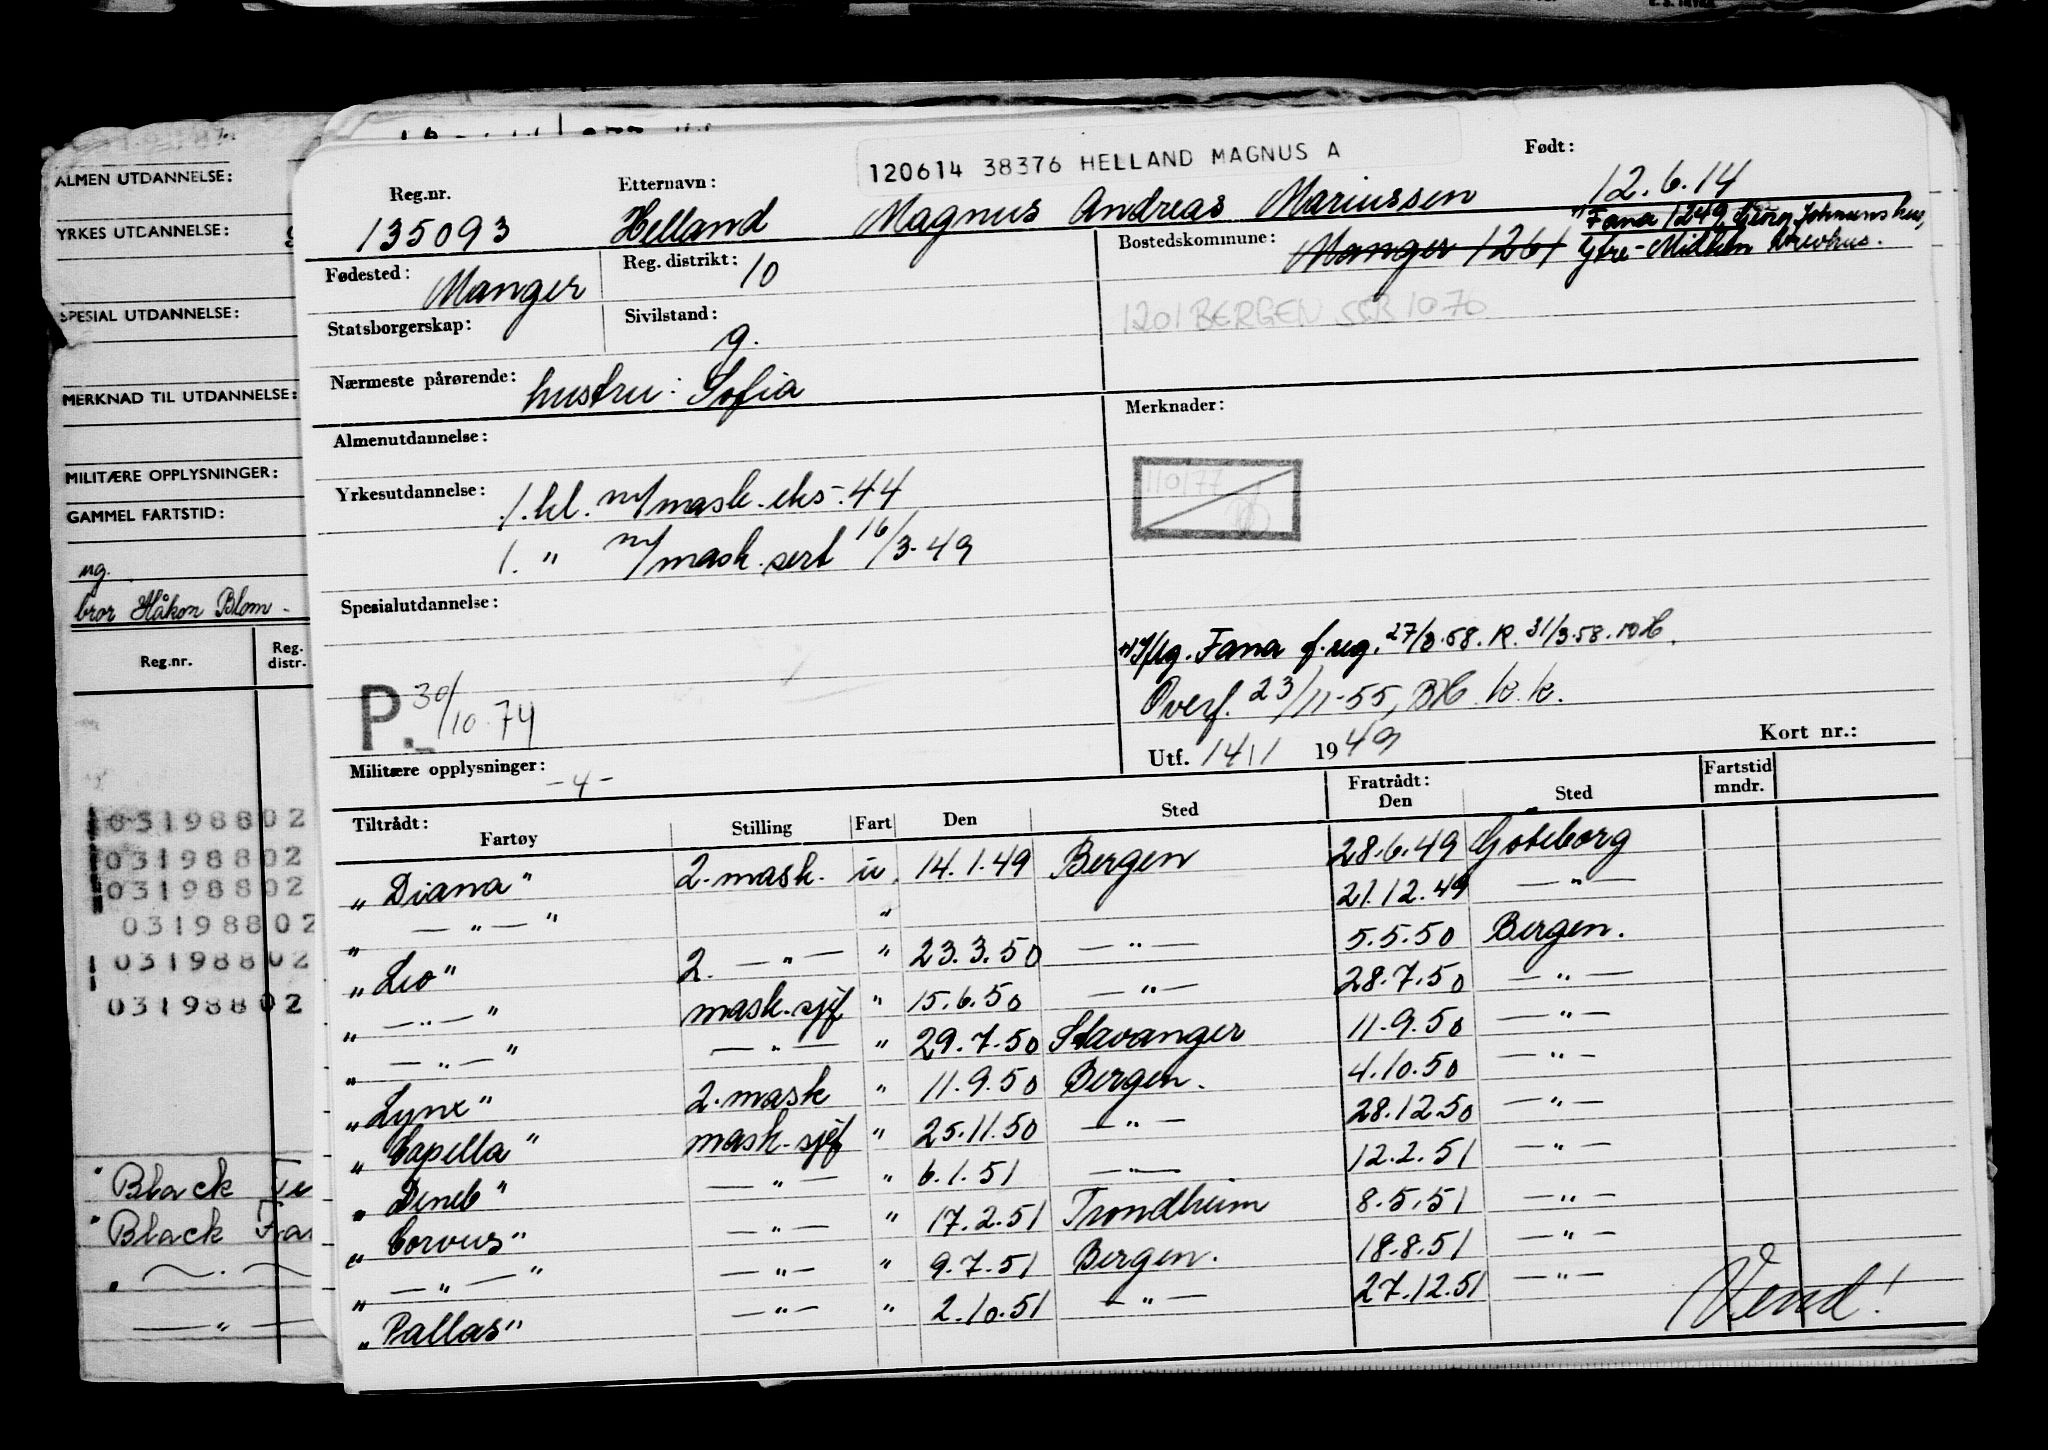 120614 38376 HELLAND MAGNUS A
Født:
Reg.nr. Etternavn: 12.6.14
135093 Helland Magnus Andreas Mariussen
Bostedskommune: Manger 1261
*) Fana 1249, Georg Johannshus,
Ytre-Milden brevhus.
Fødested: Manger Reg. distrikt: 10
1201 BERGEN SSB 1070
Statsborgerskap: Sivilstand: g.
Nærmeste pårørende: hustru: Sofia
Almenutdannelse: Merknader:
110177
Yrkesutdannelse: 1. kl. m/mask. eks. 44
1. " m/mask. sert 16/3-49
Spesialutdannelse:
*) Iflg. Fana f.reg. 27/3.58. R. 31/3.58.
Overf. 23/11-55, BH. k.k.
P. 30/10.74
Utf. 14/1 1949 Kort nr.:
Militære opplysninger: -4-
Tiltrådt: Fratrådt:
Fartøy Stilling Fart Den Sted Den Sted Fartstid mndr.
"Diana" 2. mask. u. 14.1.49 Bergen 28.6.49 Goteborg
" — " — " " 21.12.49 — " —
"Leo" 2. — " — " 23.3.50 — " — 5.5.50 Bergen.
" — " — " mask.sjef " 15.6.50 — " — 28.7.50 — " —
" — " — " — " — " 29.7.50 Stavanger 11.9.50 — " —
"Lynx" 2. mask " 11.9.50 Bergen. 4.10.50 — " —
"Capella" mask.sjef " 25.11.50 — " — 28.12.50 — " —
"Deneb" — " — " 6.1.51 — " — 12.2.51 — " —
"Corvus" — " — " 17.2.51 Trondheim 8.5.51 — " —
" — " — " — " — " 9.7.51 Bergen. 18.8.51 — " —
"Pallas" — " — " 2.10.51 — " — 27.12.51 — " —
Vend!
ALMEN UTDANNELSE:
YRKES UTDANNELSE:
SPESIAL UTDANNELSE:
MERKNAD TIL UTDANNELSE:
MILITÆRE OPPLYSNINGER:
GAMMEL FARTSTID:
ug.
bror Håkon Blom -
Reg.nr. Reg. distr.
03198802
03198802
03198802
03198802
03198802
03198802
" Black
" Black
" — . —
— " —